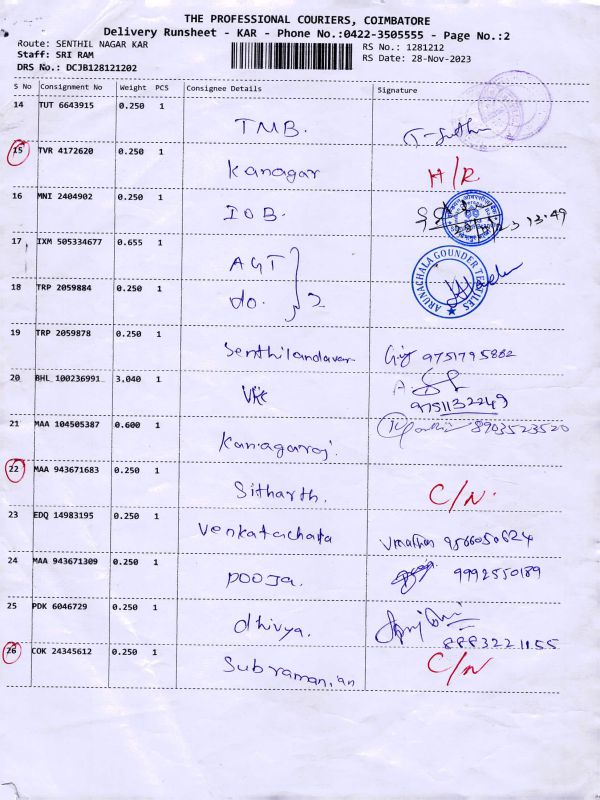 THE PROFESSIONAL COURIERS, COIMBATORE
Delivery Runsheet - KAR - Phone No.:0422-3505555 - Page No.:2
Route: SENTHIL NAGAR KAR RS No.: 1281212
Staff: SRI RAM RS Date: 28-Nov-2023
DRS No.: DCJB128121202
S No Consignment No Weight PCS Consignee Details Signature
14 TUT 6643915 0.250 1
TMB.
15 TVR 4172620 0.250 1
Kanagar H/R
16 MNI 2404902 0.250 1
IOB. 13:49
17 IXM 505334677 0.655 1
AGT
ARUNACHALA GOUNDER TEXTILES
18 TRP 2059884 0.250 1
do. 2
19 TRP 2059878 0.250 1
Senthilandavar 9751795862
20 BHL 100236991 3.040 1
VKC 9751132249
21 MAA 104505387 0.600 1
Kanagaraj. 8903523520
22 MAA 943671683 0.250 1
Sitharth. C/N.
23 EDQ 14983195 0.250 1
Venkatachala 9566050824
24 MAA 943671309 0.250 1
Pooja. 9992550189
25 PDK 6046729 0.250 1
dhivya. 8883221155
26 COK 24345612 0.250 1
Subramanian C/N